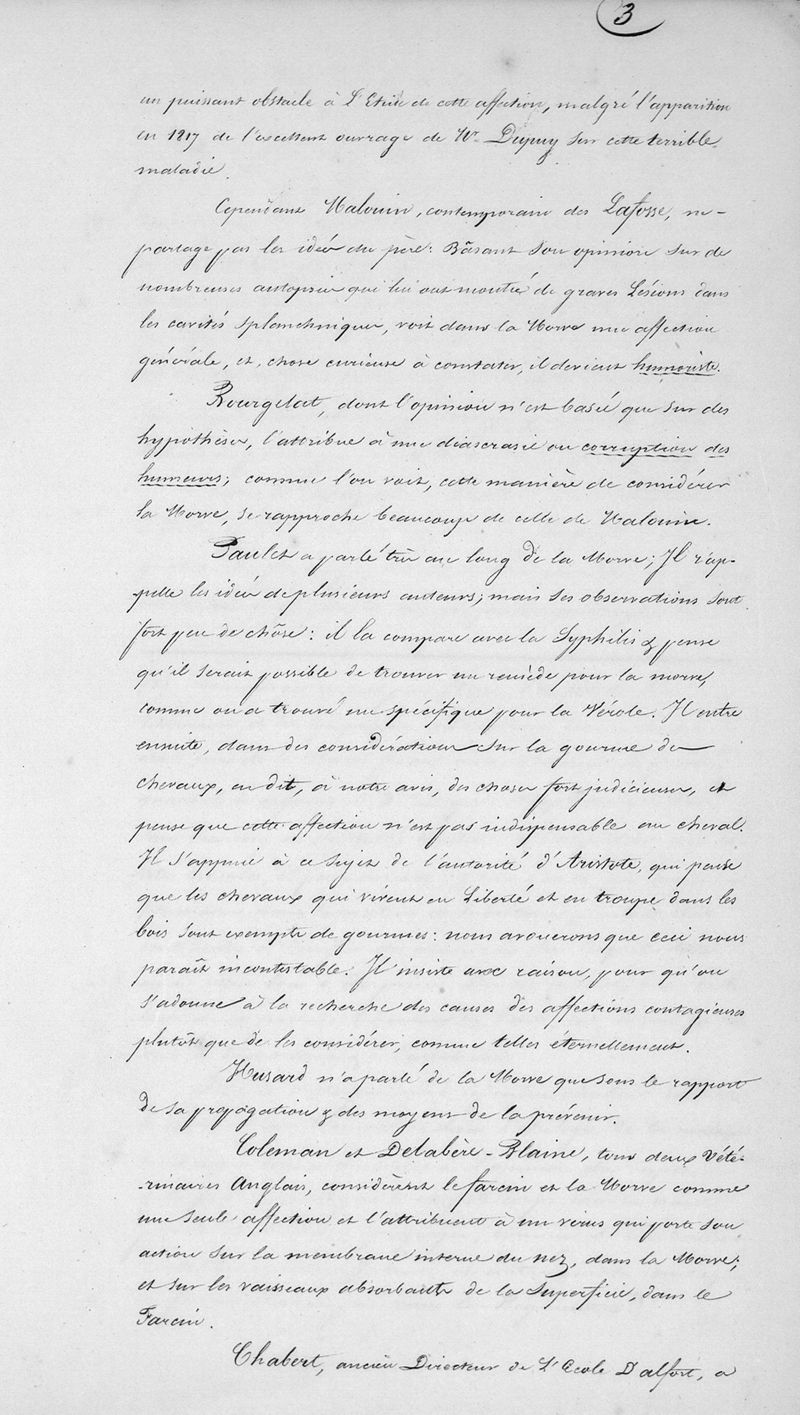 3
un puissant obstacle à L'Etude de cette affection, malgré l'apparition
en 1817 de l'excellent ouvrage de Mr Dupuy sur cette terrible
maladie.
Cependant Malouin, contemporain des Lafosse, ne
partage pas les idées du père: Bâsant son opinion sur de
nombreuses autopsies qui lui ont montré de graves Lésions dans
les cavités splanchniques, voit dans la Morve une affection
générale, et, chose curieuse à constater, il devient humoriste.
Bourgelat, dont l'opinion n'est basée que sur des
hypothèses, l'attribue à une diascrasie ou corruption des
humeurs; comme l'on voit, cette manière de considérer
la Morve, se rapproche beaucoup de celle de Malouin.
Paulet a parlé très au long de la Morve; Il rap-
pelle les idées de plusieurs auteurs; mais ses observations sont
fort peu de chôse: il la compare avec la Syphilis & pense
qu'il serait possible de trouver un remède pour la morve,
comme on a trouvé un spécifique pour la Vérole. Il entre
ensuite, dans des considérations sur la gourme des
chevaux, en dit, à notre avis, des choses fort judicieuses, et
pense que cette affection n'est pas indispensable au cheval.
Il s'appuie à ce sujet de l'autorité d'Aristote, qui pense
que les chevaux qui vivent en Liberté et en troupe dans les
bois sont exempts de gourmes: nous avouerons que ceci nous
paraît incontestable. Il insiste avec raison, pour qu'on
s'adonne à la recherche des causes des affections contagieuses
plutôt que de les considérer, comme telles éternellement.
Husard n'a parlé de la Morve que sous le rapport
de sa propagation & des moyens de la prévenir.
Coleman et Delabère-Blaine, tous deux Vété-
rinaires Anglais, considèrent le farcin et la Morve comme
une seule affection et l'attribuent à un virus qui porte son
action sur la membrane interne du nez, dans la Morve;
et sur les vaisseaux absorbants de la Superficie, dans le
Farcin.
Chabert, ancien Directeur de L'Ecole D'alfort, a